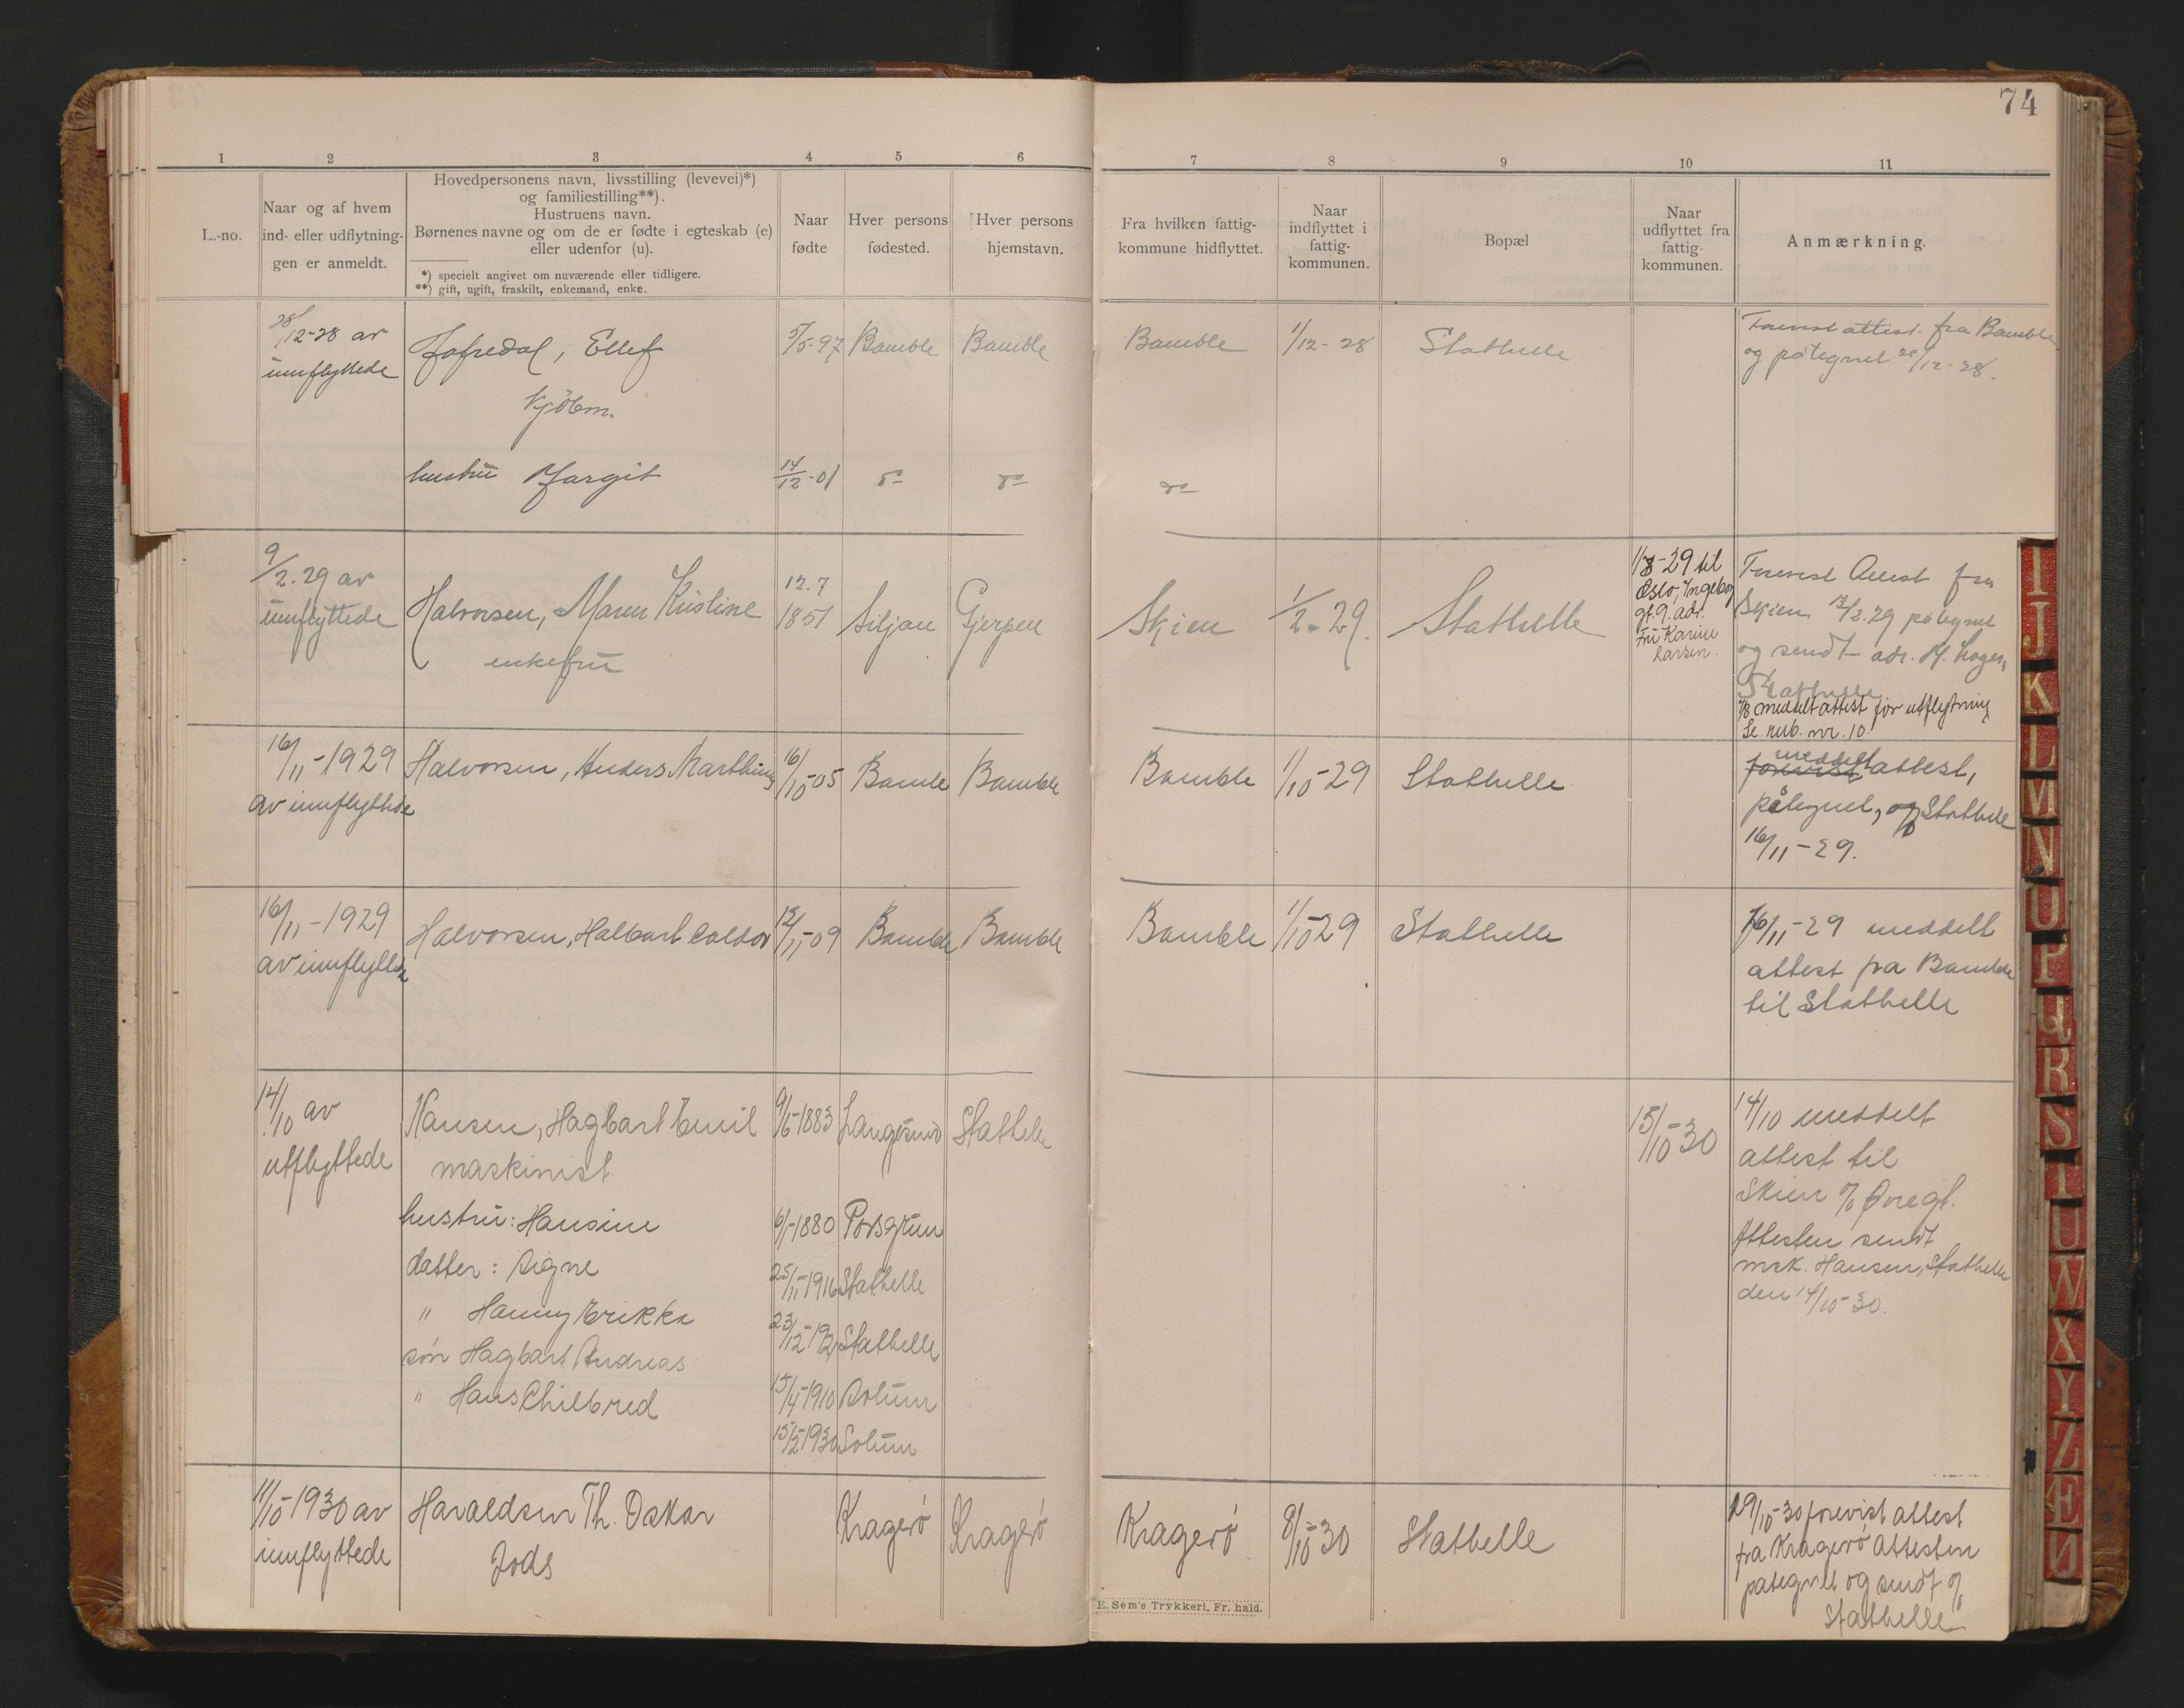 74
1 2 3 4 5 6 7 8 9 10 11
L.-no.
Naar og af hvem
ind- eller udflytnin-
gen er anmeldt.
Hovedpersonens navn, livsstilling (levevei)*)
og familiestilling**).
Hustruens navn.
Børnenes navne og om de er fødte i egteskab (e)
eller udenfor (u).
*) specielt angivet om nuværende eller tidligere.
**) gift, ugift, fraskilt, enkemand, enke.
Naar
fødte
Hver persons
fødested.
Hver persons
hjemstavn.
Fra hvilken fattig-
kommune hidflyttet.
Naar
indflyttet i
fattig-
kommunen.
Bopæl
Naar
udflyttet fra
fattig-
kommunen.
Anmærkning.
28/12-28 av
innflyttede
Ellef
Kjöbm.
5/5-97
Bamble
Bamble
Bamble
1/12-28
Stathelle
Forevist attest fra Bamble
og påtegnet 28/12-28.
hustru Margit
14/12-01
do
do
do
9/2.29 av
innflyttede
Halvorsen, Maren Kristine
enkefru
12.7
1851
Siljan
Gjerpen
Skien
1/2-29.
Stathelle
1/8-29 til
Oslo, Ingeborg
gt. 9. adr.
Fru Karin
Larsen.
Forevist Attest fra
Skien 12/2.29 påtegnet
og sendt adr. H.
Stathelle
7/8 meddelt attest for utflytning
Se rub. nr. 10.
16/11-1929
av innflyttede
Halvorsen, Anders Marthinus
16/10-05
Bamble
Bamble
Bamble
1/10-29
Stathelle
meddelt
forevist attest,
påtegnet, op Stathelle
16/11-29.
16/11-1929
av innflyttede
Halvorsen, Halbart
12/11-09
Bamble
Bamble
Bamble
1/10-29
Stathelle
16/11-29 meddelt
attest fra Bamble
til Stathelle
14/10 av
utflyttede
Hansen, Hagbart Emil
maskinist
9/6-1883
Langesund
Stathelle
15/10-30
14/10 meddelt
attest til
Skien o/
Attesten sendt
mask. Hansen, Stathelle
den 14/10-30.
hustru: Hansine
6/1-1880
Porsgrunn
datter: Signe
25/11-1916
Stathelle
" Hanny Erikka
Stathelle
sön Hagbart Andreas
15/4-1910
Solum
" Hans
Solum
11/10-1930 av
innflyttede
Haraldsen Th. Oskar
Kragerö
Kragerö
Kragerö
8/10-30
Stathelle
29/10-30 forevist attest
fra Kragerö Attesten
påtegnet og sendt o/
Stathelle
E. Sem's Trykkeri, Fr. hald.
I
J
K
L
M
N
O
P
Q
R
S
T
U
W
X
Y
Z
Æ
Ø